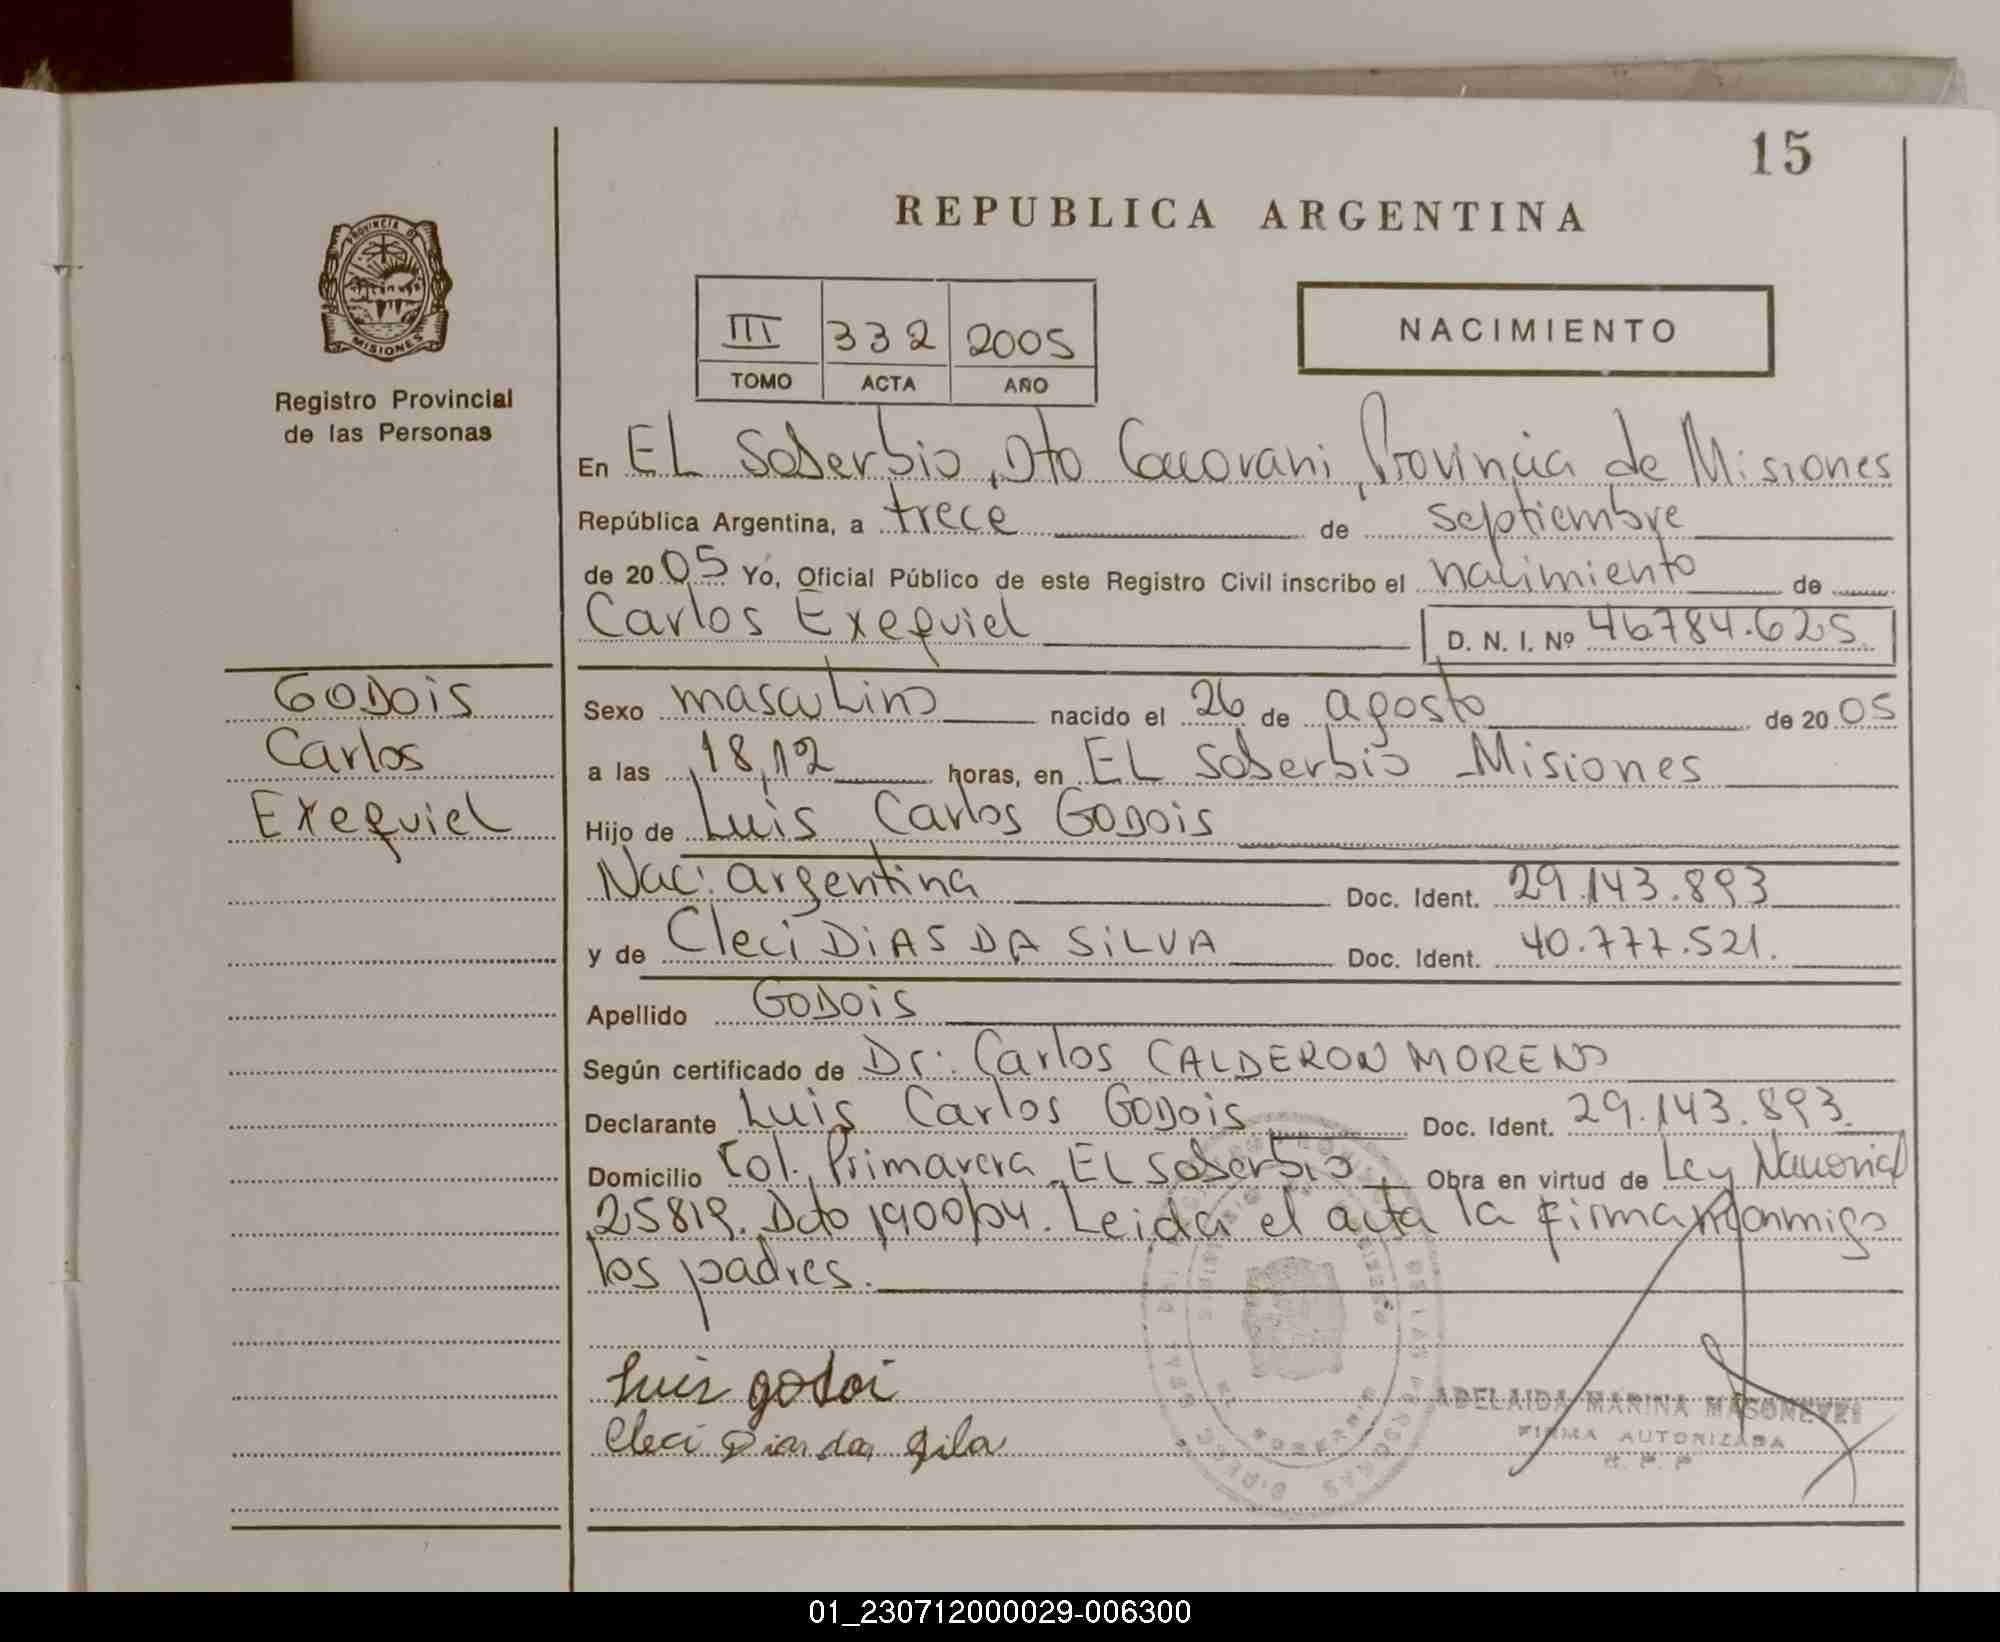 15
REPUBLICA ARGENTINA
PROVINCIA DE
MISIONES
Registro Provincial
de las Personas
III 332 2005
TOMO ACTA AÑO
NACIMIENTO
En EL Soberbio, Dto Guarani, Provincia de Misiones
República Argentina, a trece de septiembre
de 2005 Yo, Oficial Público de este Registro Civil inscribo el nacimiento de
Carlos Exequiel D. N. I. Nº 46.784.625.
GODOiS
Carlos
Exequiel
Sexo masculino nacido el 26 de agosto de 2005
a las 18,12 horas, en EL Soberbio - Misiones
Hijo de Luis Carlos GODOiS
Nac: argentina Doc. Ident. 29.143.893
y de Cleci DiAS DA SiLVA Doc. Ident. 40.777.521.
Apellido GODOiS
Según certificado de Dr: Carlos CALDERON MORENO
Declarante Luis Carlos GODOiS Doc. Ident. 29.143.893.
Domicilio Col. Primavera - EL Soberbio Obra en virtud de Ley Nacional
25819. Dcto 1900/04. Leida el acta la firman conmigo
los padres.
Luis godoi
Cleci Dias da Silva
ADELAIDA MARINA
FIRMA AUTORIZADA
01_230712000029-006300